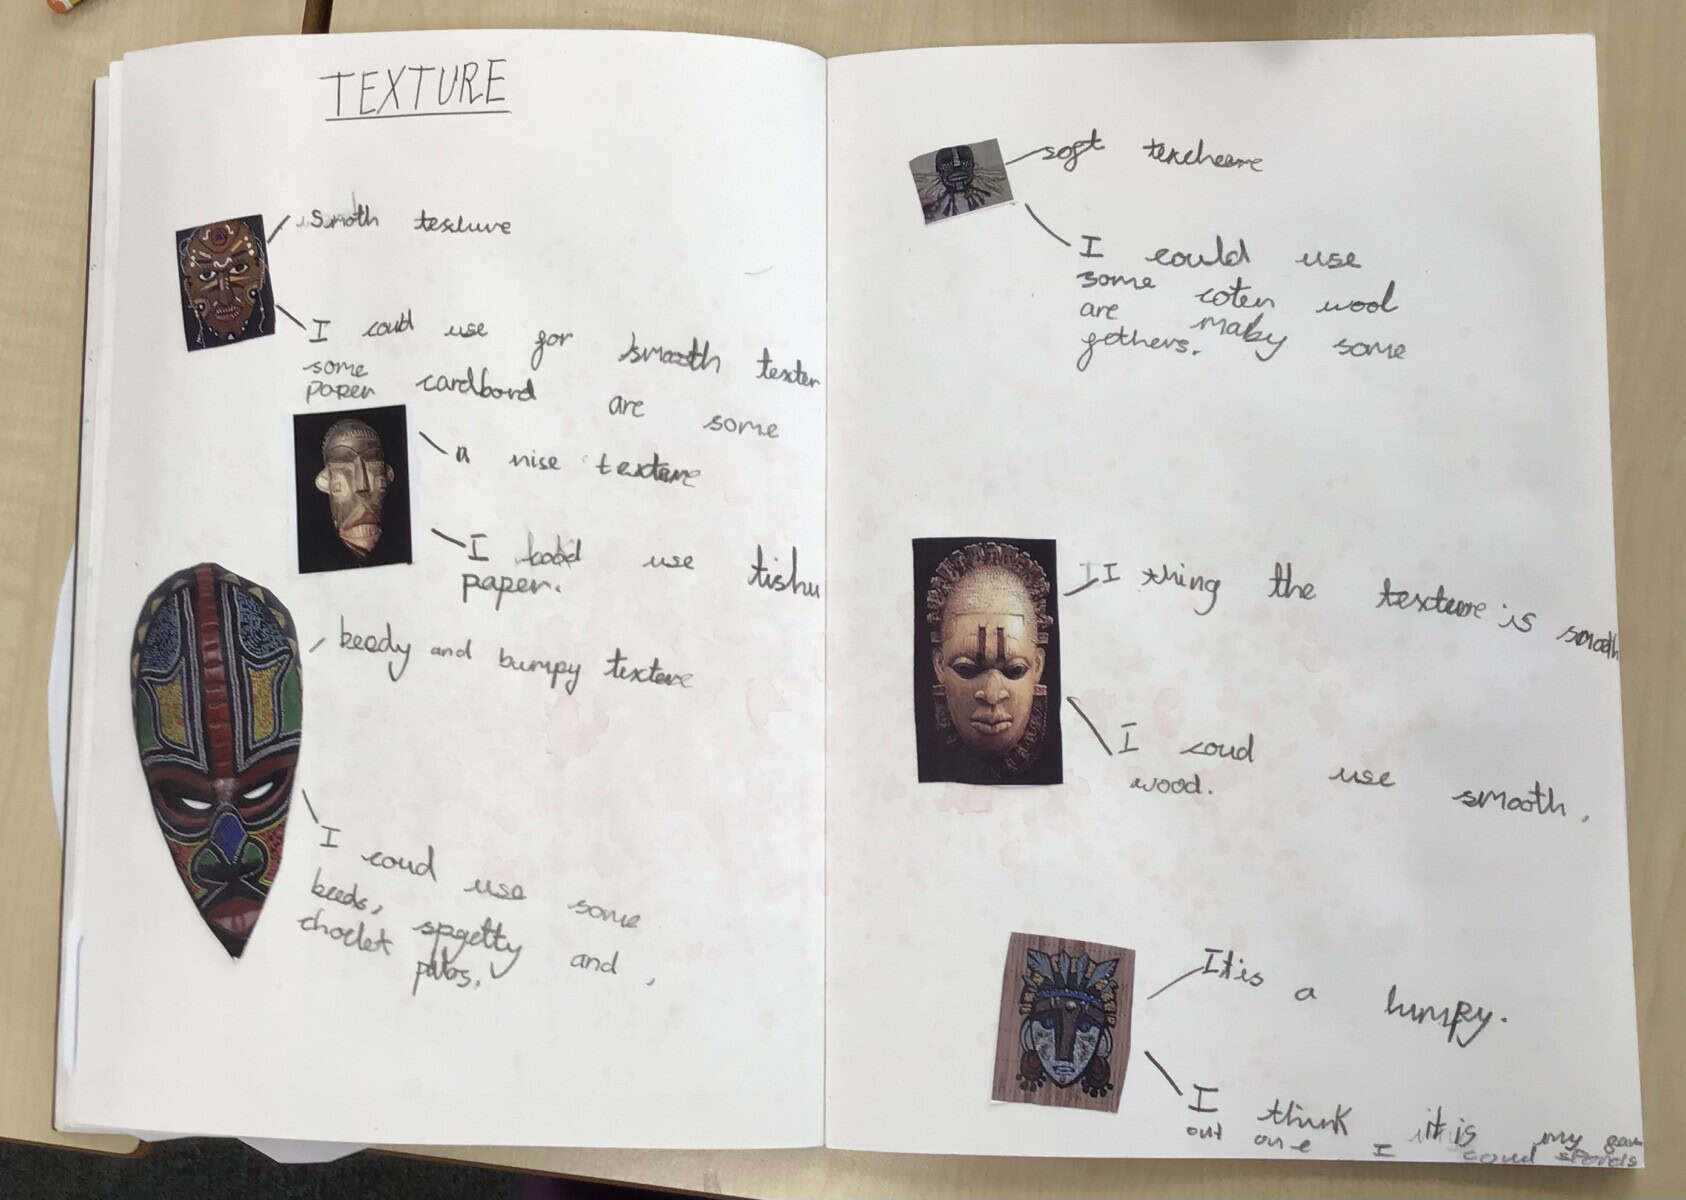 TEXTURE
smoth texture
I could use for smooth texter
some cardbord are some
paper
a nise texture
I cood use tishu
paper.
beedy and bumpy texture
I coud use some
beeds, spgetty and,
choclet
soft texcheare
I could use
some coten wool
are maby some
fethers.
I thing the texture is smooth
I coud use smooth.
wood.
It is a lumpy.
I think it is my
out one I coud